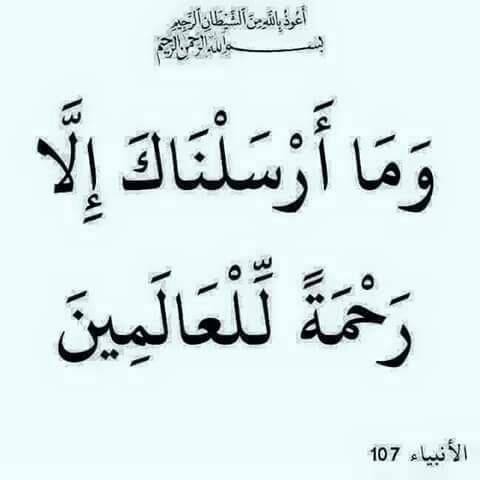 أعوذ بالله من الشيطان الرجيم
بسم الله الرحمن الرحيم
وَمَا أَرْسَلْنَاكَ إِلَّا
رَحْمَةً لِّلْعَالَمِينَ
الأنبياء 107